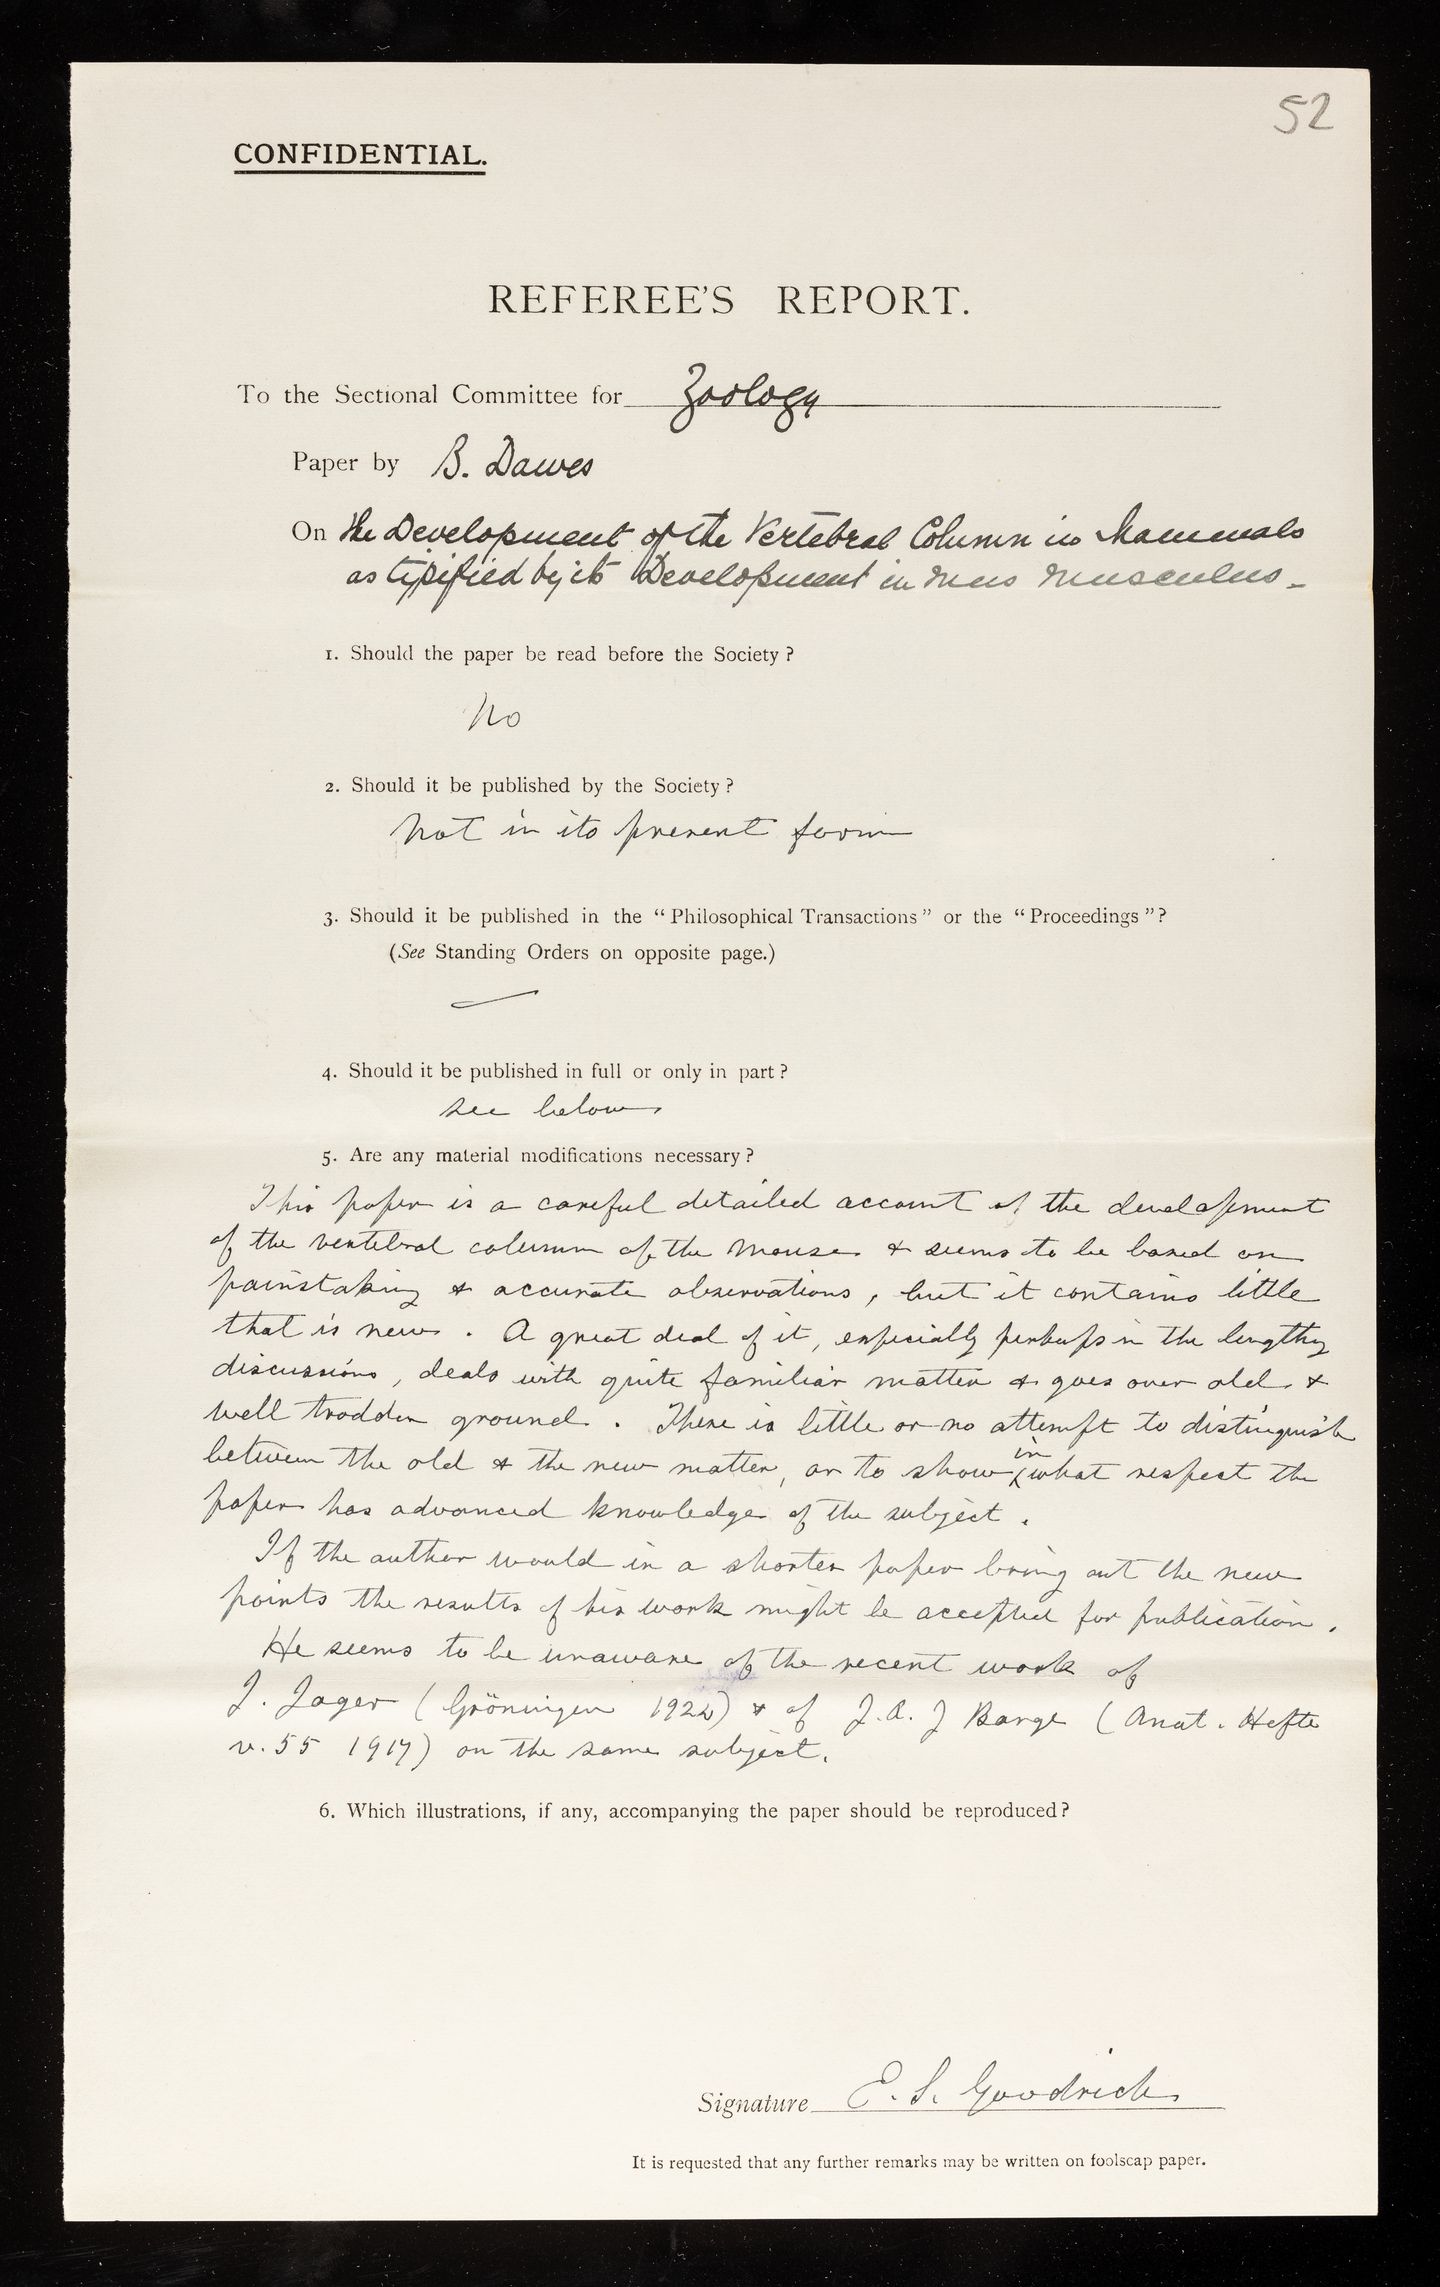 52
CONFIDENTIAL.
REFEREE'S REPORT.
To the Sectional Committee for Zoology
Paper by B. Dawes
On the Development of the Vertebral Column in Mammals
as typified by its Development in Mus Musculus.
1. Should the paper be read before the Society?
No
2. Should it be published by the Society?
Not in its present form
3. Should it be published in the "Philosophical Transactions" or the "Proceedings"?
(See Standing Orders on opposite page.)
—
4. Should it be published in full or only in part?
see below
5. Are any material modifications necessary?
This paper is a careful detailed account of the development
of the vertebral column of the Mouse & seems to be based on
painstaking & accurate observations, but it contains little
that is new. A great deal of it, especially perhaps in the lengthy
discussions, deals with quite familiar matter & goes over old &
well trodden ground. There is little or no attempt to distinguish
between the old & the new matter, or to show in what respect the
paper has advanced knowledge of the subject.
If the author would in a shorter paper bring out the new
points the results of his work might be accepted for publication.
He seems to be unaware of the recent work of
J. Jager (Gröningen 1922) & of J. A. J Barge (Anat. Hefte
v. 55 1917) on the same subject.
6. Which illustrations, if any, accompanying the paper should be reproduced?
Signature E. S. Goodrich
It is requested that any further remarks may be written on foolscap paper.